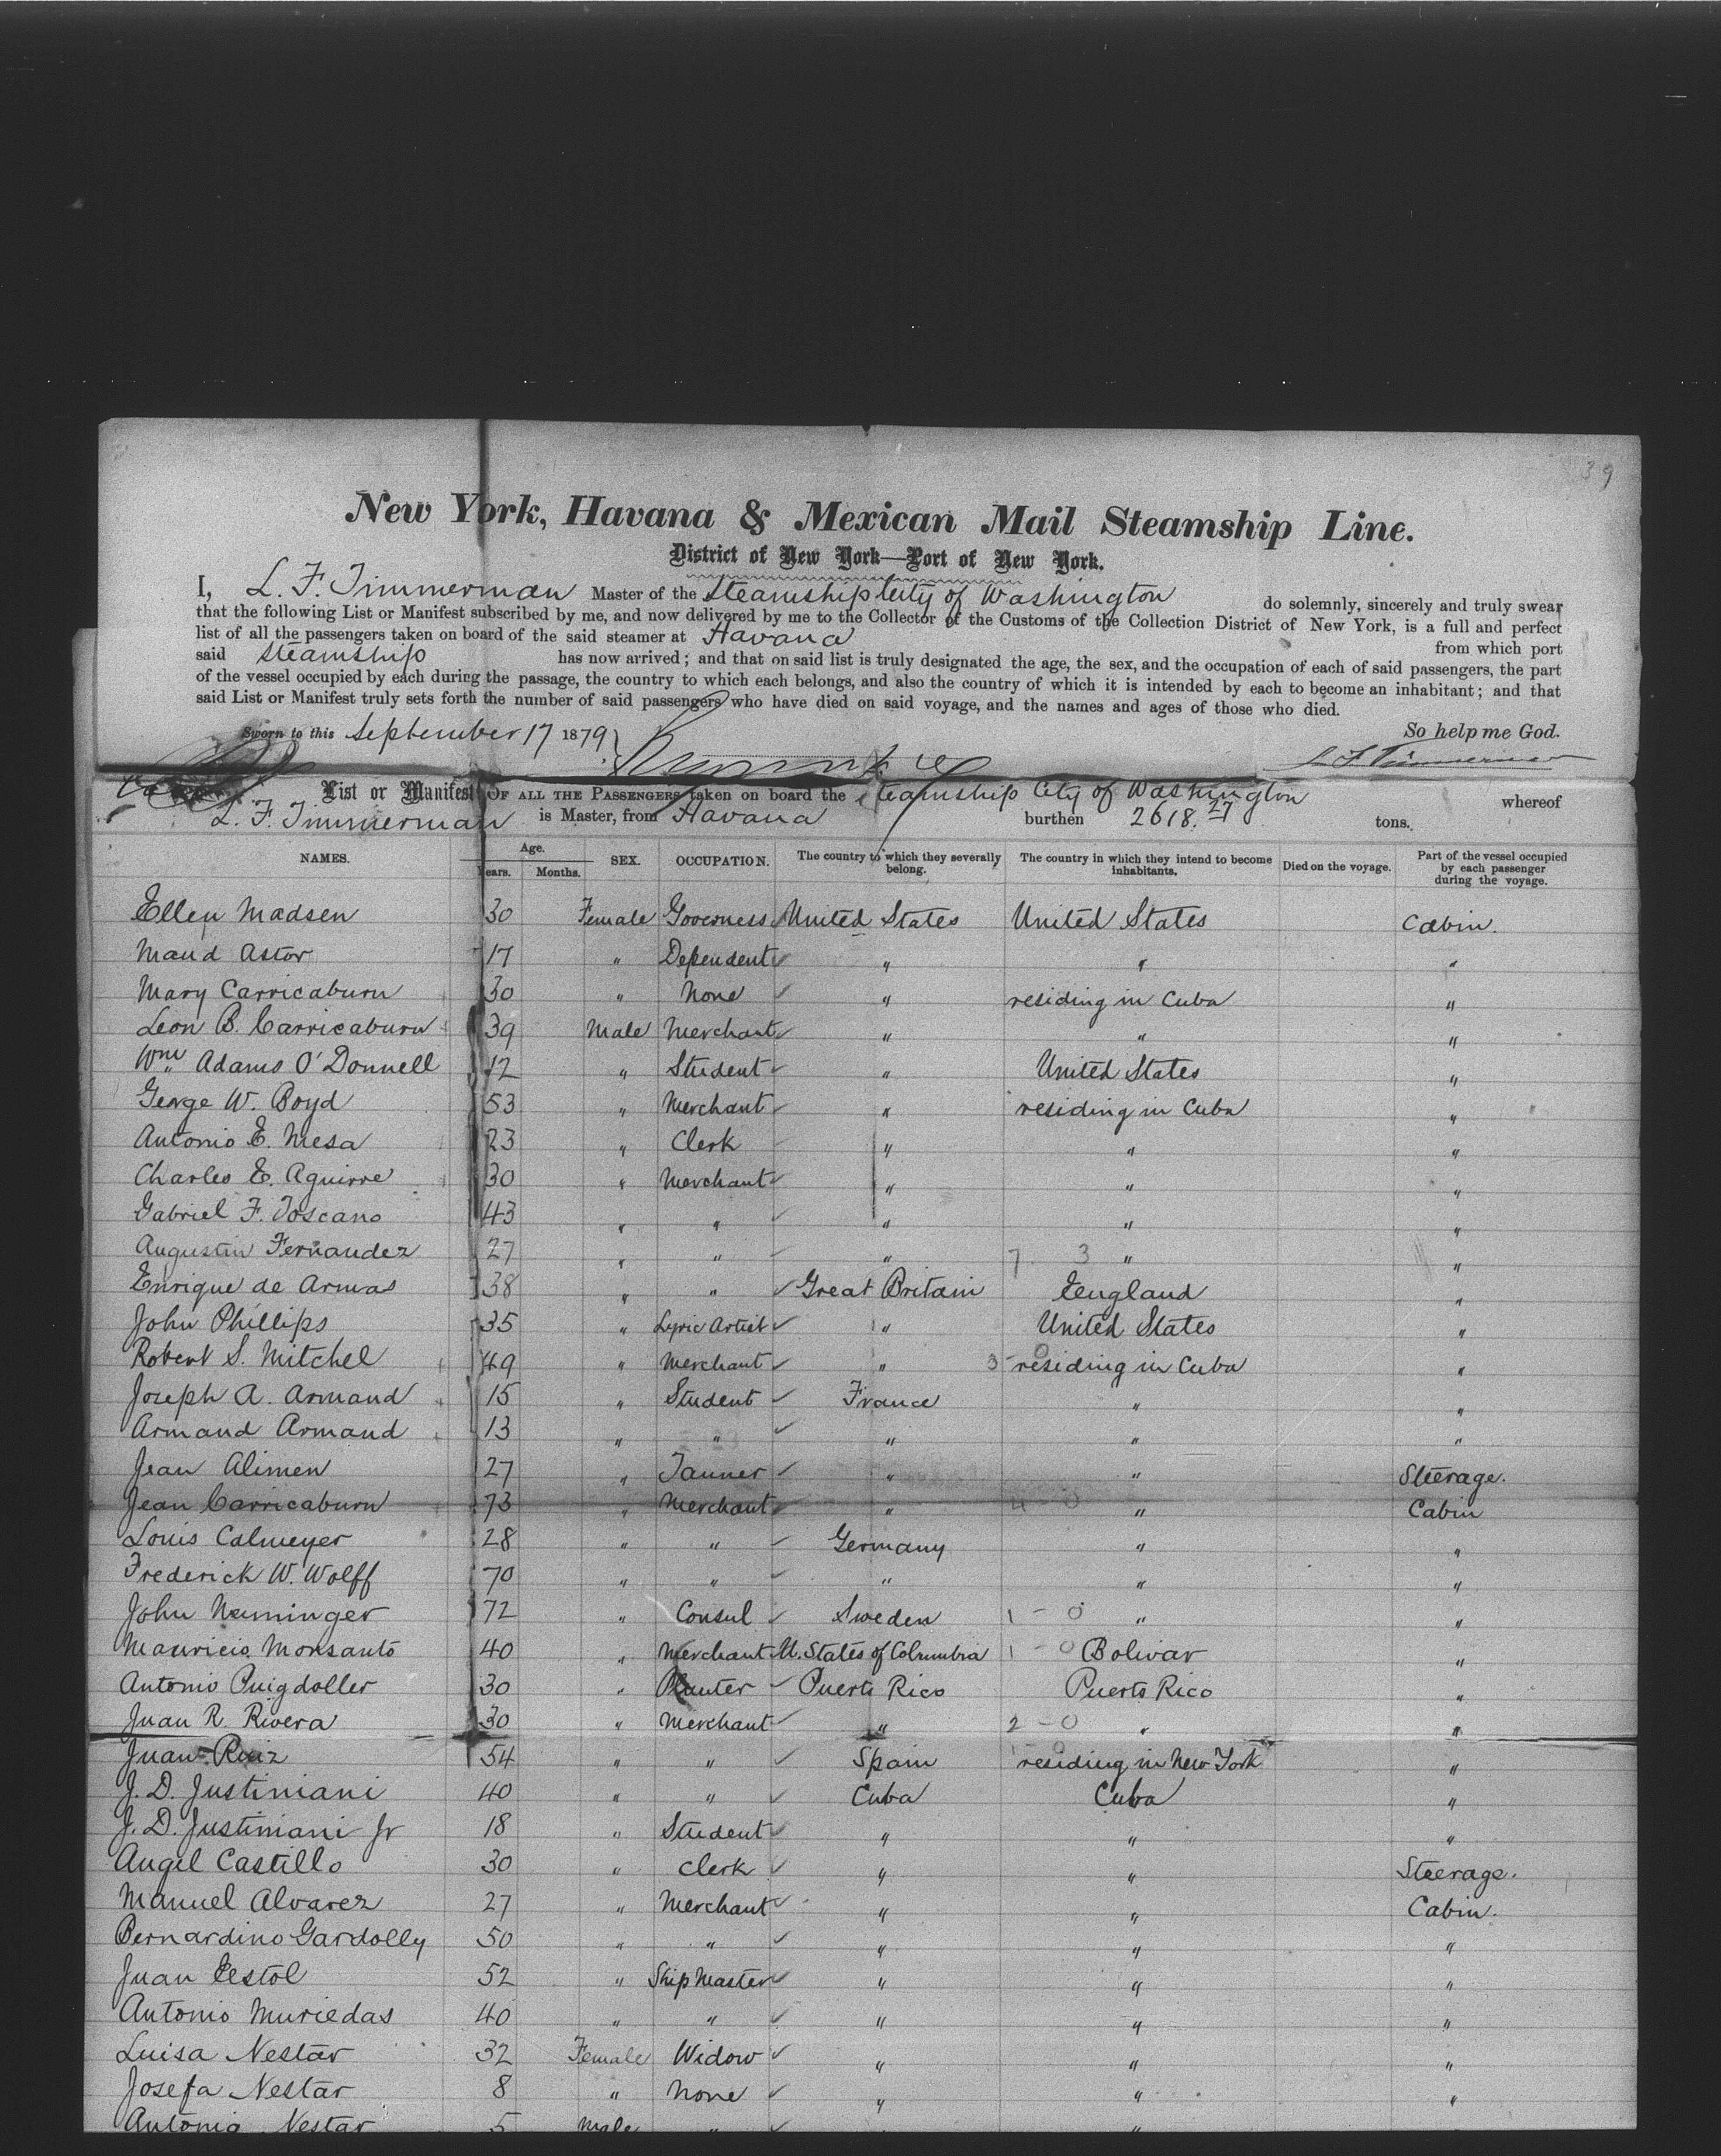 39
New York, Havana & Mexican Mail Steamship Line.
District of New York—Port of New York.
I, L. F. Timmerman Master of the Steamship City of Washington do solemnly, sincerely and truly swear
that the following List or Manifest subscribed by me, and now delivered by me to the Collector of the Customs of the Collection District of New York, is a full and perfect
list of all the passengers taken on board of the said steamer at Havana from which port
said Steamship has now arrived; and that on said list is truly designated the age, the sex, and the occupation of each of said passengers, the part
of the vessel occupied by each during the passage, the country to which each belongs, and also the country of which it is intended by each to become an inhabitant; and that
said List or Manifest truly sets forth the number of said passengers who have died on said voyage, and the names and ages of those who died.
Sworn to this September 17 1879 So help me God.
L F Timmerman
List or Manifest OF ALL THE PASSENGERS taken on board the Steamship City of Washington whereof
L. F. Timmerman is Master, from Havana burthen 2618.27 tons.
NAMES. Age. Years. Months. SEX. OCCUPATION. The country to which they severally belong. The country in which they intend to become inhabitants. Died on the voyage. Part of the vessel occupied by each passenger during the voyage.
Ellen Madsen 30 Female Governess United States United States Cabin.
Maud Astor 17 " Dependent " " "
Mary Carricaburn 30 " None " residing in Cuba "
Leon B. Carricaburn 39 Male Merchant " " "
Wm Adams O'Donnell 12 " Student " United States "
George W. Boyd 53 " Merchant " residing in Cuba "
Antonio E. Mesa 23 " Clerk " " "
Charles E. Aguirre 30 " Merchant " " "
Gabriel F. Toscano 43 " " " " "
Augustin Fernandez 27 " " " 7 3 " "
Enrique de Armas 38 " " Great Britain England "
John Phillips 35 " Lyric Artist " United States "
Robert S. Mitchel 49 " Merchant " 3-0 residing in Cuba "
Joseph A. Armand 15 " Student France " "
Armand Armand 13 " " " " "
Jean Alimen 27 " Tanner " " Steerage.
Jean Carricaburn 73 " Merchant " 4-0 " Cabin
Louis Calmeyer 28 " " Germany " "
Frederick W. Wolff 70 " " " " "
John Neuninger 72 " Consul Sweden 1-0 " "
Mauricio Monsanto 40 " Merchant U. States of Columbia 1-0 Bolivar "
Antonio Puigdoller 30 " Planter Puerto Rico Puerto Rico "
Juan R. Rivera 30 " Merchant " 2-0 " "
Juan Ruiz 54 " " Spain 1-0 residing in New York "
J. D. Justiniani 40 " " Cuba Cuba "
J. D. Justiniani Jr 18 " Student " " "
Angel Castillo 30 " Clerk " " Steerage.
Manuel Alvarez 27 " Merchant " " Cabin.
Bernardino Gardolly 50 " " " " "
Juan Estol 52 " Ship Master " " "
Antonio Muriedas 40 " " " " "
Luisa Nestar 32 Female Widow " " "
Josefa Nestar 8 " None " " "
Antonio Nestar 5 Male " "